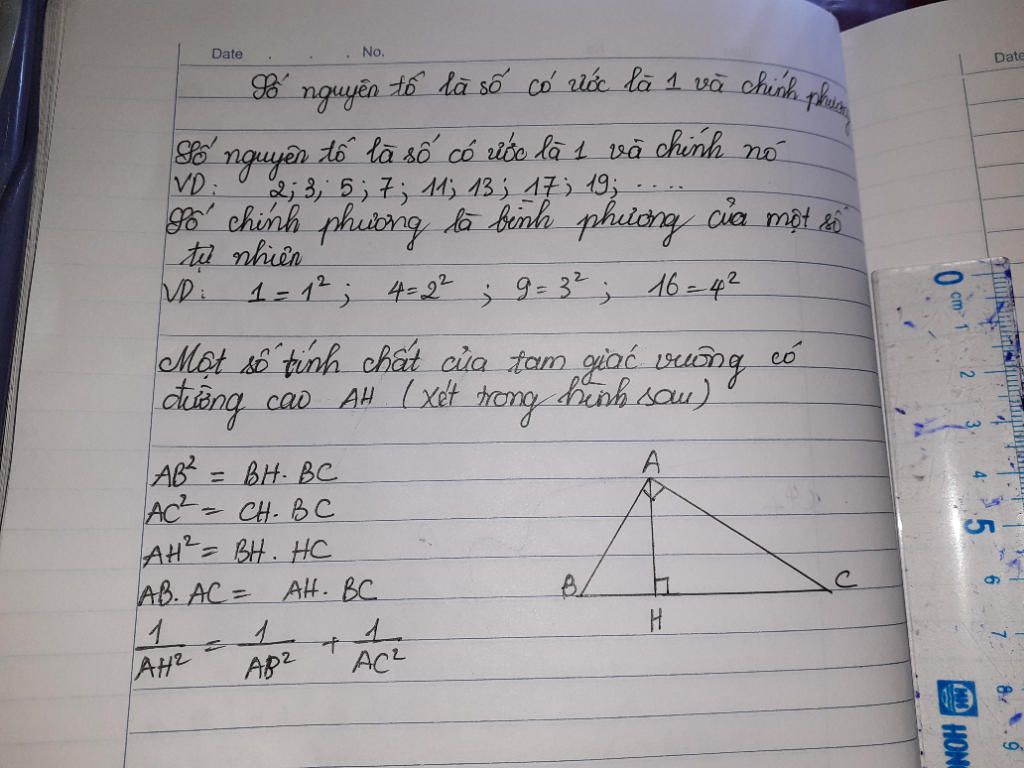 Date . . . No.
Date
Số nguyên tố là số có ước là 1 và chính phương
Số nguyên tố là số có ước là 1 và chính nó
VD: 2; 3; 5; 7; 11; 13; 17; 19; ....
Số chính phương là bình phương của một số
tự nhiên
VD: 1 = 1²; 4 = 2²; 9 = 3²; 16 = 4²
Một số tính chất của tam giác vuông có
đường cao AH (xét trong hình sau)
AB² = BH. BC
AC² = CH. BC
AH² = BH. HC
AB. AC = AH. BC
1/AH² = 1/AB² + 1/AC²
A
B
H
C
0 cm 1
2
3
4
5
6
7
8
9
HON